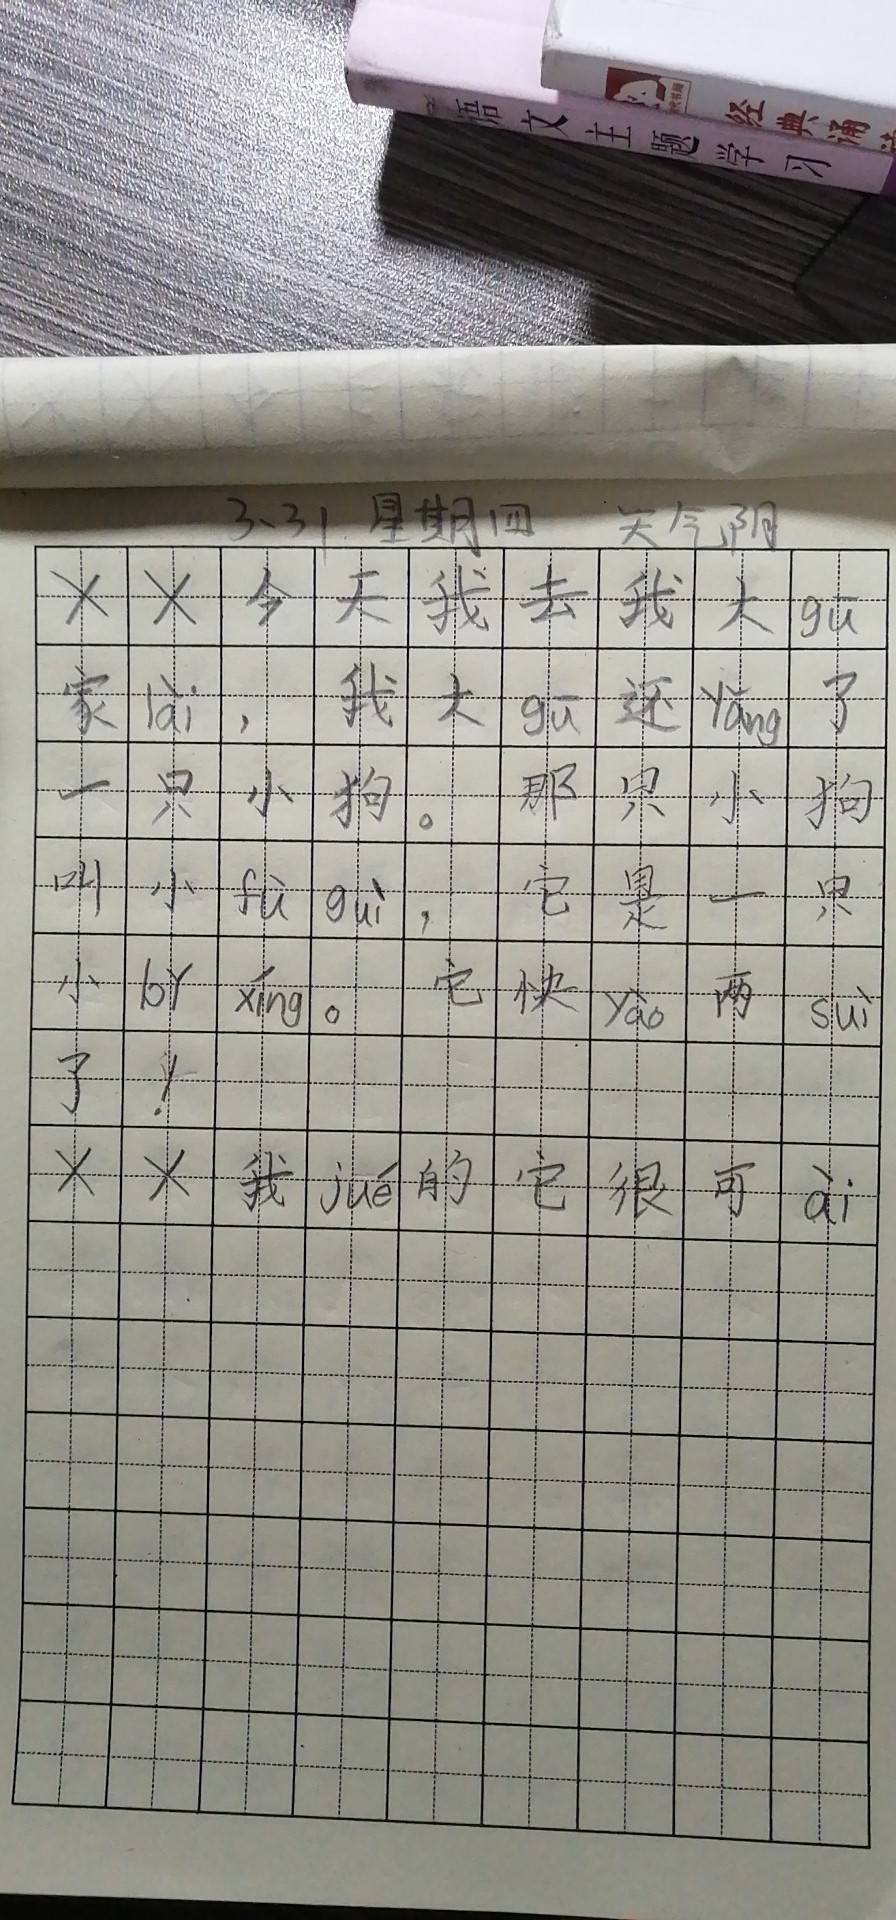 经典诵
语文主题学习
3、31 星期四 天气阴
XX今天我去我大gū
家lài，我大gū还yǎng了
一只小狗。那只小狗
叫小fù guì，它是一只
小bǐ xíng。它快yào两suì
了！
XX我jué的它很可ài